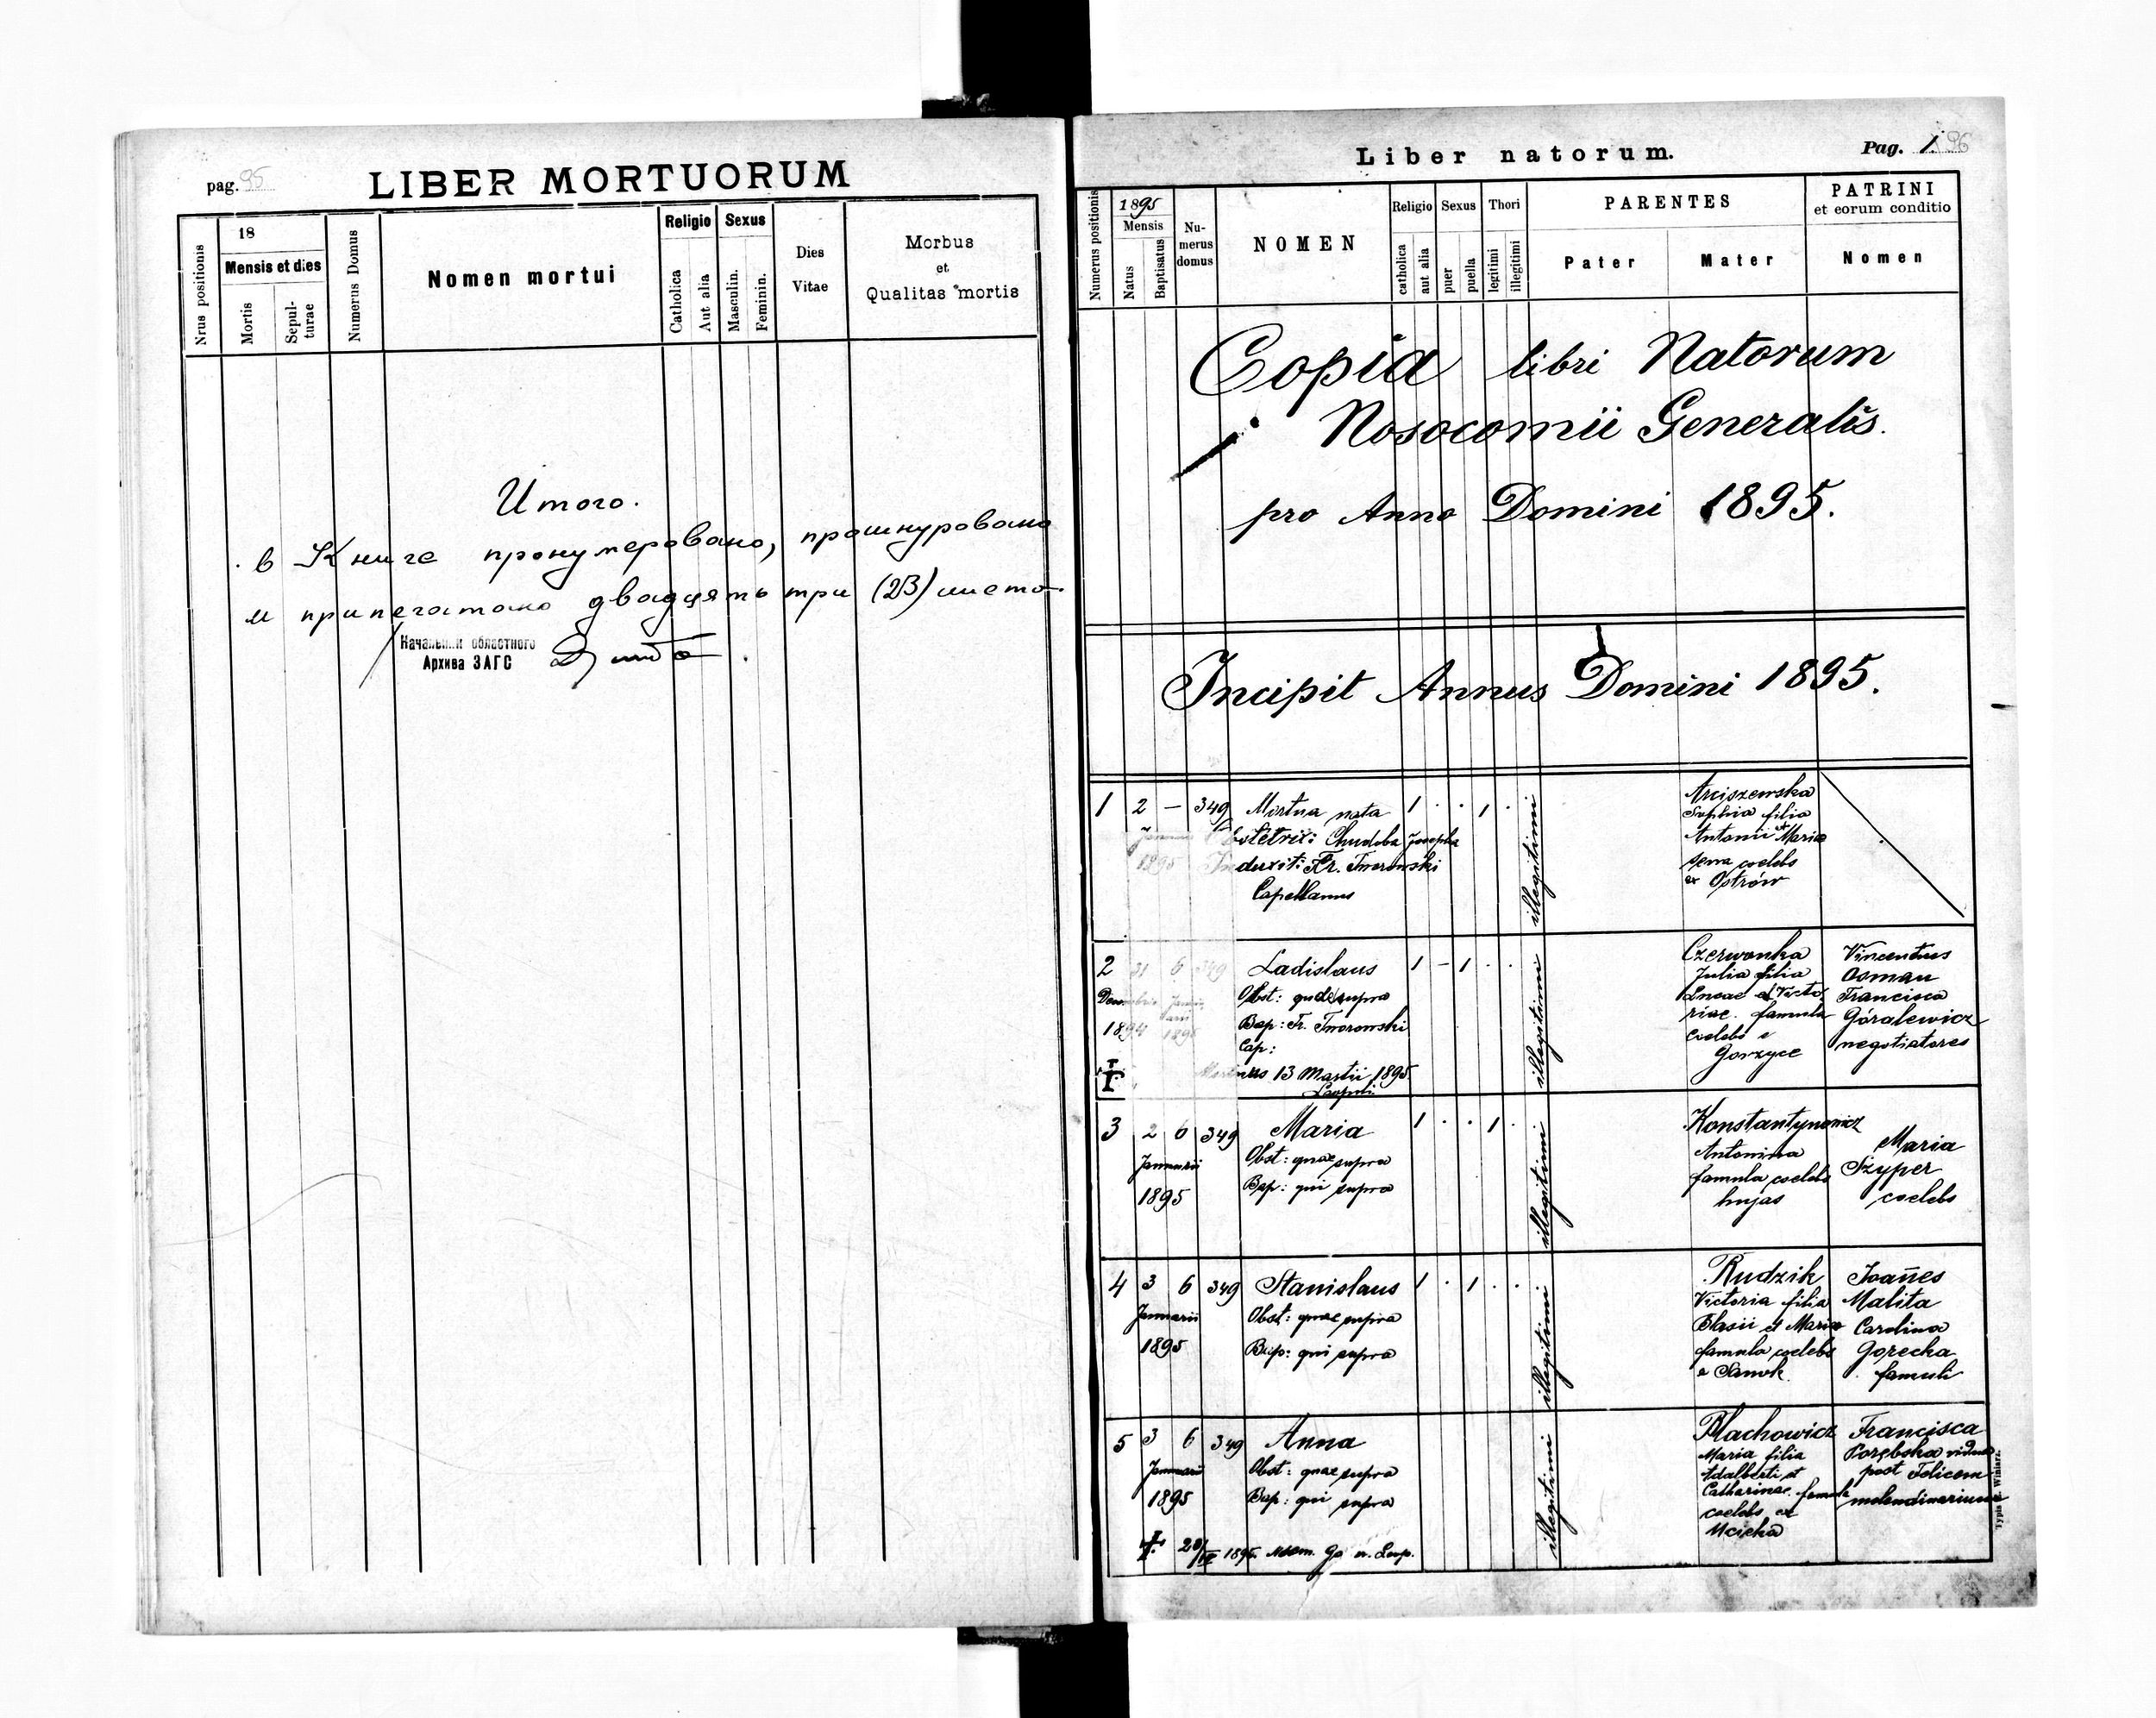 pag. 95
LIBER MORTUORUM
Nrus positionis
18
Mensis et dies
Mortis
Sepul-
turae
Numerus Domus
Nomen mortui
Religio
Catholica
Aut alia
Sexus
Masculin.
Feminin.
Dies
Vitae
Morbus
et
Qualitas mortis
Итого.
в Книге пронумеровано, прошнуровано
и припечатано двадцять три (23) листа.
Начальник областного
Архива ЗАГС
Liber natorum.
Pag. 1. 96
Numerus positionis
1895
Mensis
Natus
Baptisatus
Nu-
merus
domus
NOMEN
Religio
catholica
aut alia
Sexus
puer
puella
Thori
legitimi
illegitimi
PARENTES
Pater
Mater
PATRINI
et eorum conditio
Nomen
Copia libri Natorum
Nosocomii Generalis.
pro Anno Domini 1895.
Incipit Annus Domini 1895.
1 2 — 349 Mortua nata 1 . . 1 .
Januarii
1895
Obstetrix: Chudoba Josepha
Induxit: Fr. Tworowski
Capellanus
illegitimi
Arciszewska
Sophia filia
Antonii et Mariae
serva coelebs
ex Ostrów
2 31 6 349 Ladislaus 1 – 1 . .
Decembris Januarii
1894 1895
Obst: quae supra
Bap: Fr. Tworowski
Cap:
Mortuus 13 Martii 1895.
Leopoli
illegitimi
Czerwonka
Julia filia
Lucae et Victo
riae. famula
coelebs e
Gorzyce
Vincentius
Osman
Francisca
Góralewicz
negotiatores
3 2 6 349 Maria 1 . . 1 .
Januarii
1895
Obst: quae supra
Bap: qui supra
illegitimi
Konstantynowicz
Antonina
famula coelebs
hujas
Maria
Szyper
coelebs
4 3 6 349 Stanislaus 1 . 1 . .
Januarii
1895
Obst: quae supra
Bap: qui supra
illegitimi
Rudzik
Victoria filia
Blasii et Mariae
famula coelebs
e Sanok
Joañes
Malita
Carolina
Gorecka
famuli
5 3 6 349 Anna
Januarii
1895
Obst: quae supra
Bap: qui supra
20/IX 1895.
illegitimi
Blachowicz
Maria filia
Adalberti et
Catharinae. famula
coelebs ex
Francisca
Porębska vidua
post Felicem
molendinarium
Typis Winiarz.